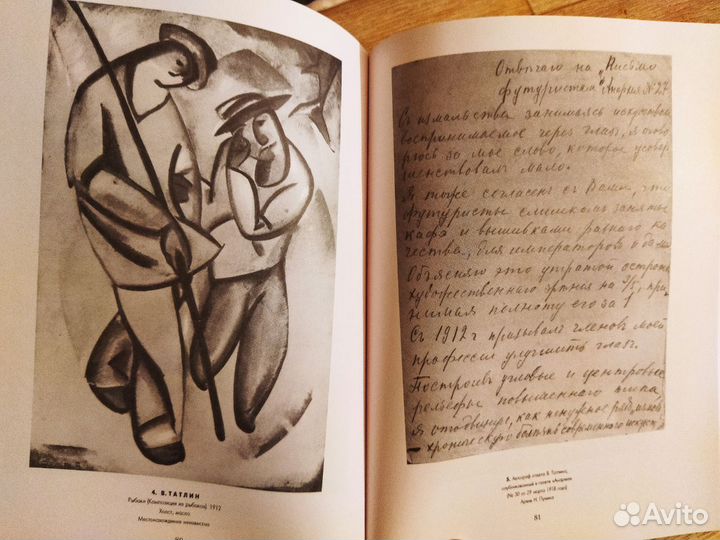 4. В. ТАТЛИН
Рыбаки (Композиция из рыбаков) 1912
Холст, масло
Местонахождение неизвестно
80
Отвѣчаю на „Письмо
футуристам" Анархия № 27
Съ измальства занимаясь искусством
воспринимаемое через глаз, я
за мое слово, которое усовер
шенствовалъ мало.
Я тоже согласенъ съ Вами, что
футуристы слишкомъ заняты
кафэ и вышивками разнаго ка
чества, для императоров и дамъ
Объясняю это утратой остроты
художественнаго зрѣния на 3/5, при
нимая полноту его за 1
Съ 1912 г призывалъ членовъ моей
профессии улучшить глазъ.
Построивъ угловые и центровые
рельефы повышеннаго типа,
я отодвинул, как ненужное ряд
хроническую болѣзнь современнаго искусст
5. Автограф ответа В. Татлина,
опубликованный в газете «Анархия»
(№ 30 от 29 марта 1918 года)
Архив Н. Пунина
81
Avito